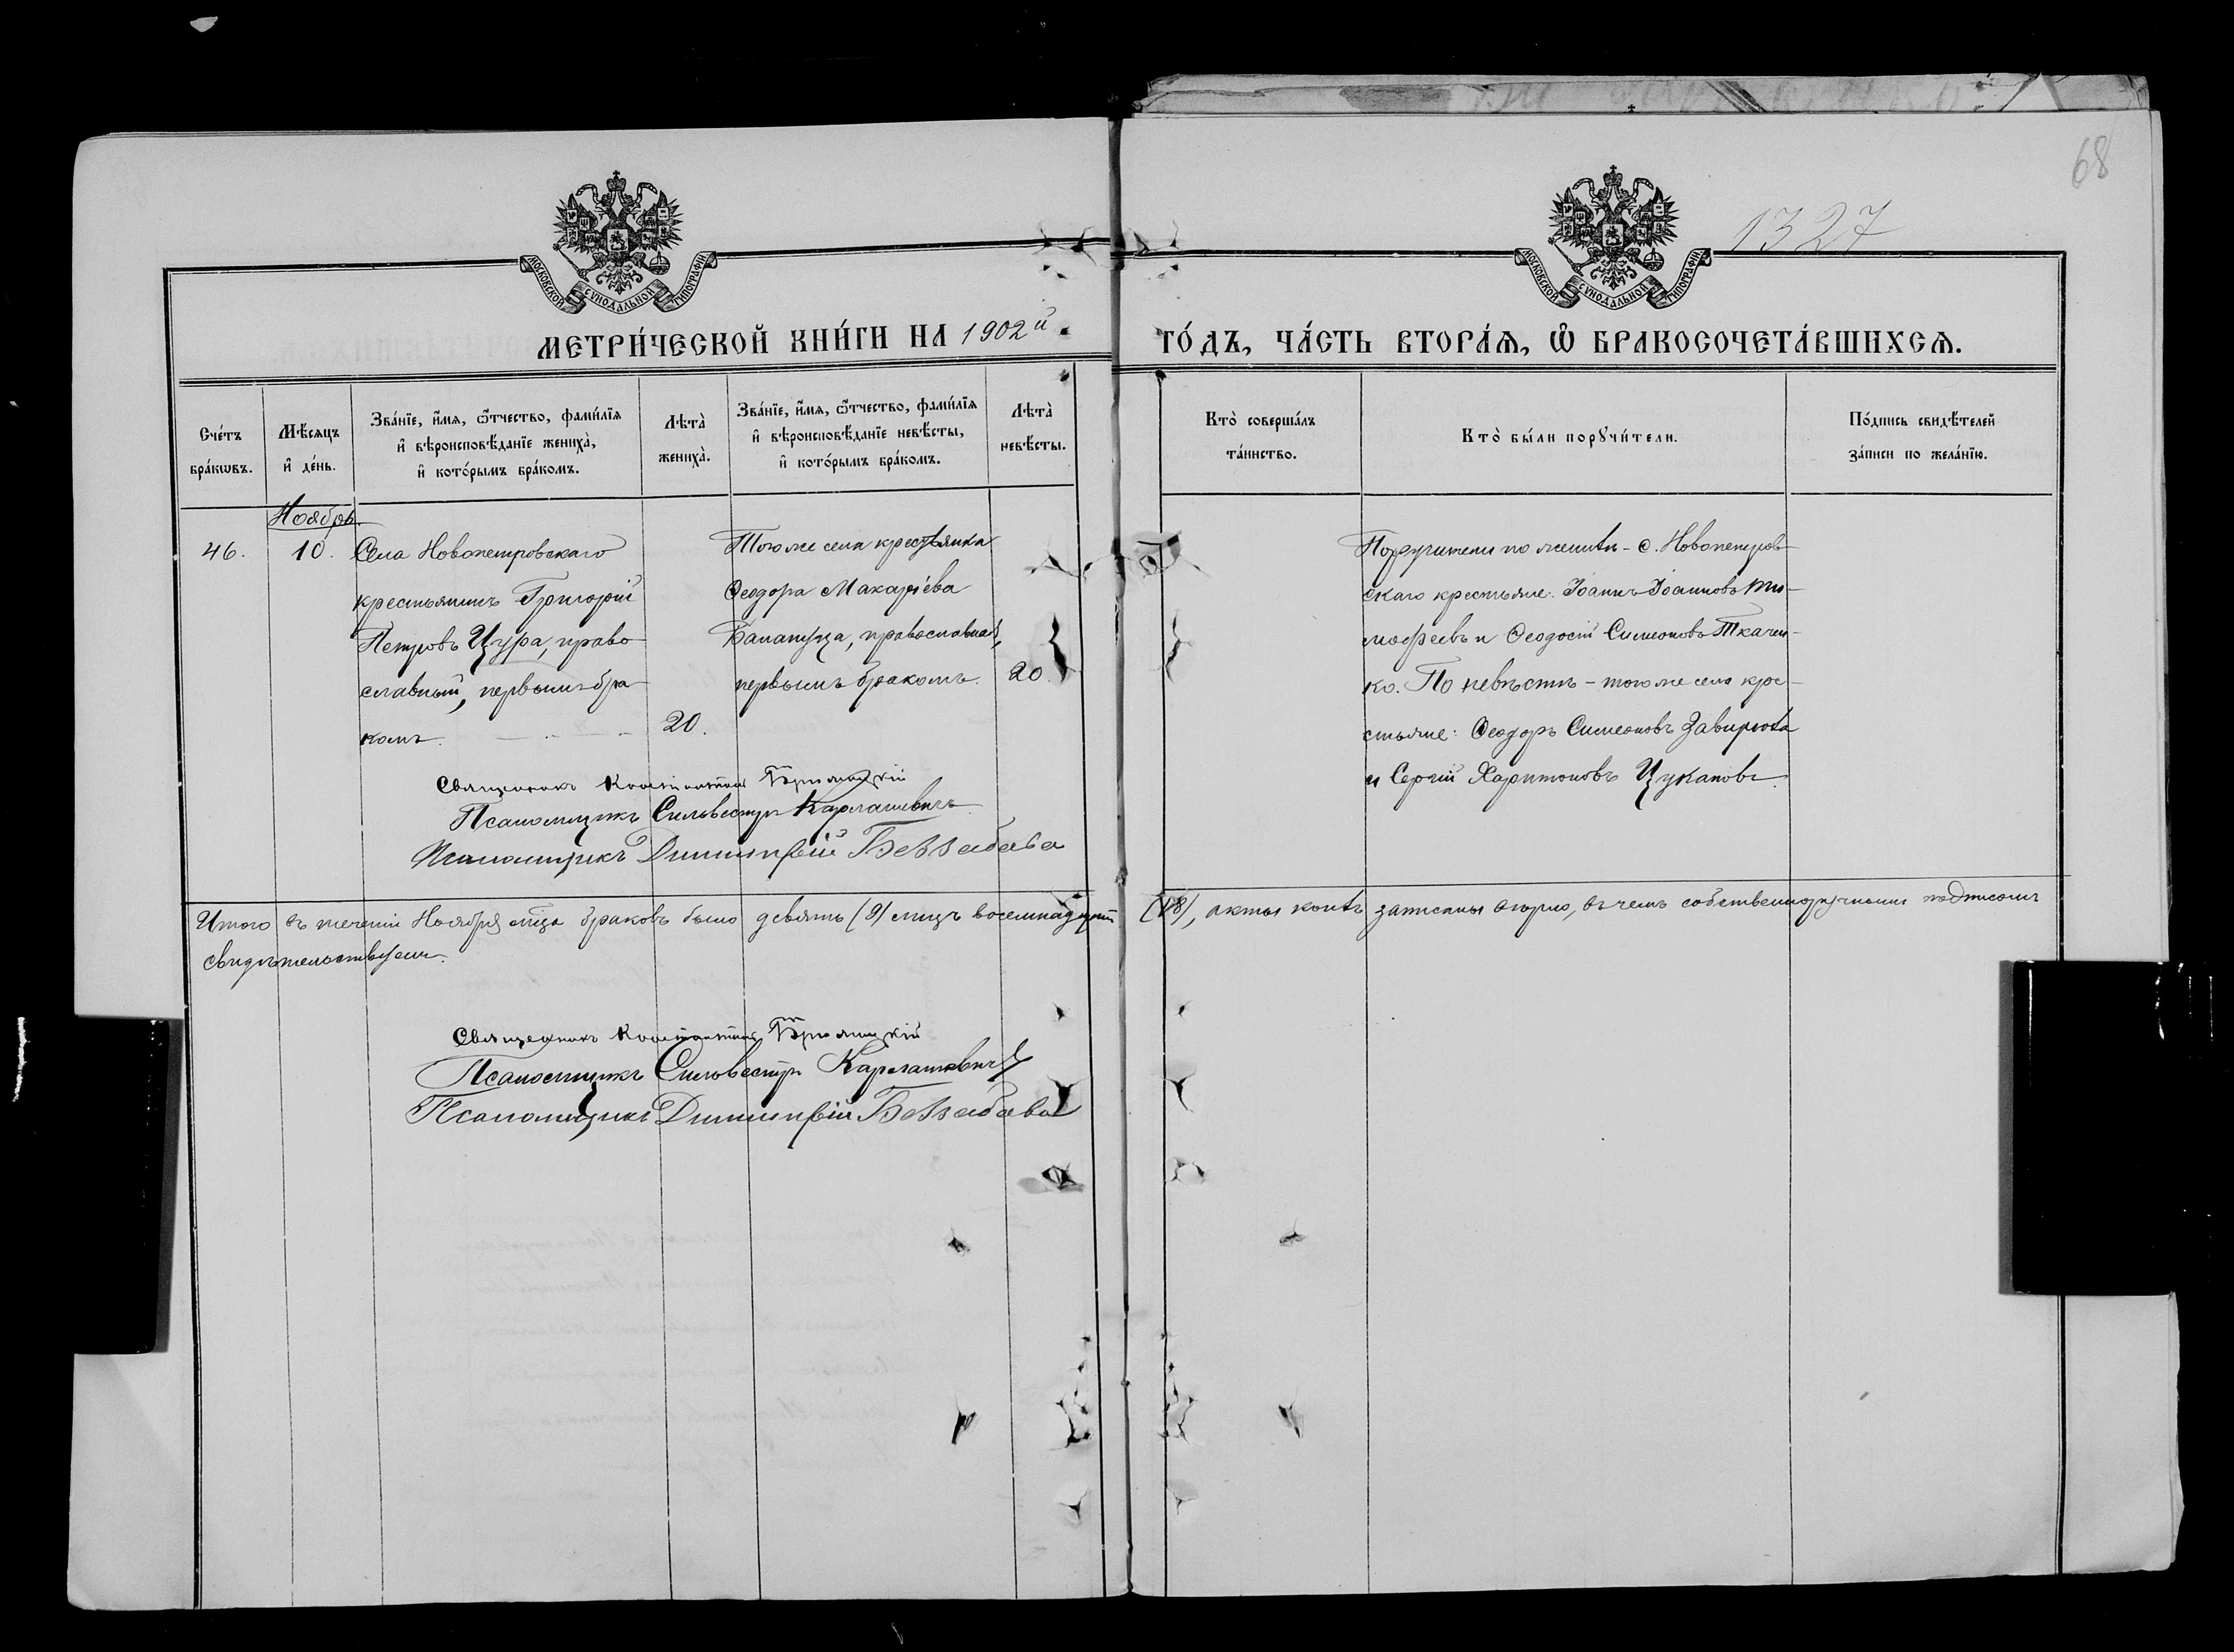 68
1327
МОСКОВСКОЙ СѴНОДАЛЬНОЙ ТИПОГРАФІИ
МОСКОВСКОЙ СѴНОДАЛЬНОЙ ТИПОГРАФІИ
МЕТРИ́ЧЕСКОЙ КНИ́ГИ НА 1902й
ГО́ДЪ, ЧА́СТЬ ВТОРА́Ѧ, Ѽ БРАКОСОЧЕТА́ВШИХСѦ.
Сче́тъ
бра́кѡвъ.
Мѣ́сяцъ
и҆ де́нь.
Зва́нїе, и҆́мя, ѻ҆́тчество, фами́лїя
и҆ вѣроисповѣ́данїе жениха̀,
и҆ кото́рымъ бра́комъ.
Лѣта̀
жениха̀.
Зва́нїе, и҆́мя, ѻ҆́тчество, фами́лїя
и҆ вѣроисповѣ́данїе невѣ́сты,
и҆ кото́рымъ бра́комъ.
Лѣта̀
невѣ́сты.
Кто̀ соверша́лъ
та́инство.
Кто̀ бы́ли порꙋчи́тели.
По́дпись свидѣ́телей
за́писи по жела́нїю.
Ноябрь.
46.
10.
Села Новопетровскаго
крестьянинъ Григорій
Петровъ Цура, право-
славный, первымъ бра-
комъ.
20.
Того же села крестьянка
Ѳеодора Макаріева
Балапуца, православная,
первымъ бракомъ.
20.
Поручители по женихѣ - с. Новопетров-
скаго крестьяне: Іоаннъ Іоанновъ Ти-
мофеевъ и Ѳеодосій Симеоновъ Ткачен-
ко. По невѣстѣ - того же села кре-
стьяне: Ѳеодоръ Симеоновъ Завирюха
и Сергій Харитоновъ Цукановъ.
Священникъ Константинъ
Псаломщикъ Сильвестръ Карлашевичъ
Псаломщикъ Димитрій Беззабава
Итого въ теченіи Ноября мѣца браковъ было девять (9) лицъ восемнадцать (18), акты коихъ записаны вѣрно, въ чемъ собственноручнымъ подписомъ
свидѣтельствуемъ.
Священникъ Константинъ
Псаломщикъ Сильвестръ Карлашевичъ
Псаломщикъ Димитрій Беззабава